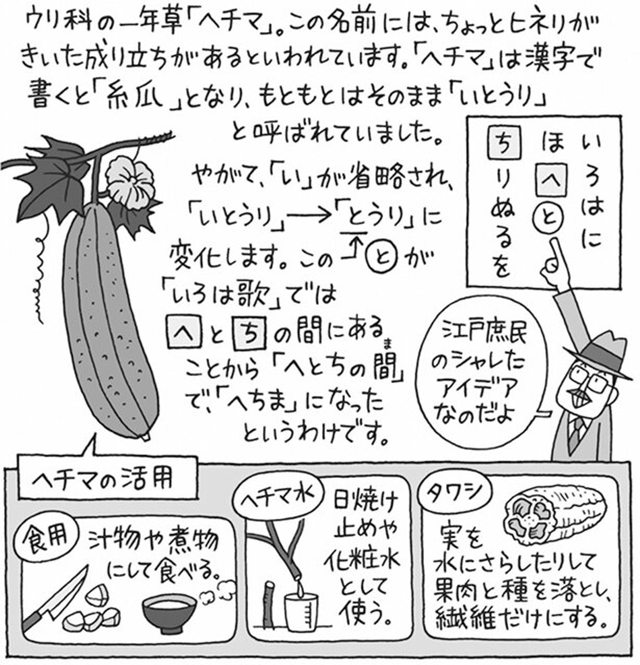 ウリ科の一年草「ヘチマ」。この名前には、ちょっとヒネリが
きいた成り立ちがあるといわれています。「ヘチマ」は漢字で
書くと「糸瓜」となり、もともとはそのまま「いとうり」
と呼ばれていました。
やがて、「い」が省略され、
「いとうり」→「とうり」に
変化します。この と が
「いろは歌」では
へ と ち の間にある
ことから「へとちの間」
ま
で、「へちま」になった
というわけです。
いろはに
ほへと
ちりぬるを
江戸庶民
のシャレた
アイデア
なのだよ
ヘチマの活用
食用
汁物や煮物
にして食べる。
ヘチマ水
日焼け
止めや
化粧水
として
使う。
タワシ
実を
水にさらしたりして
果肉と種を落とし、
繊維だけにする。